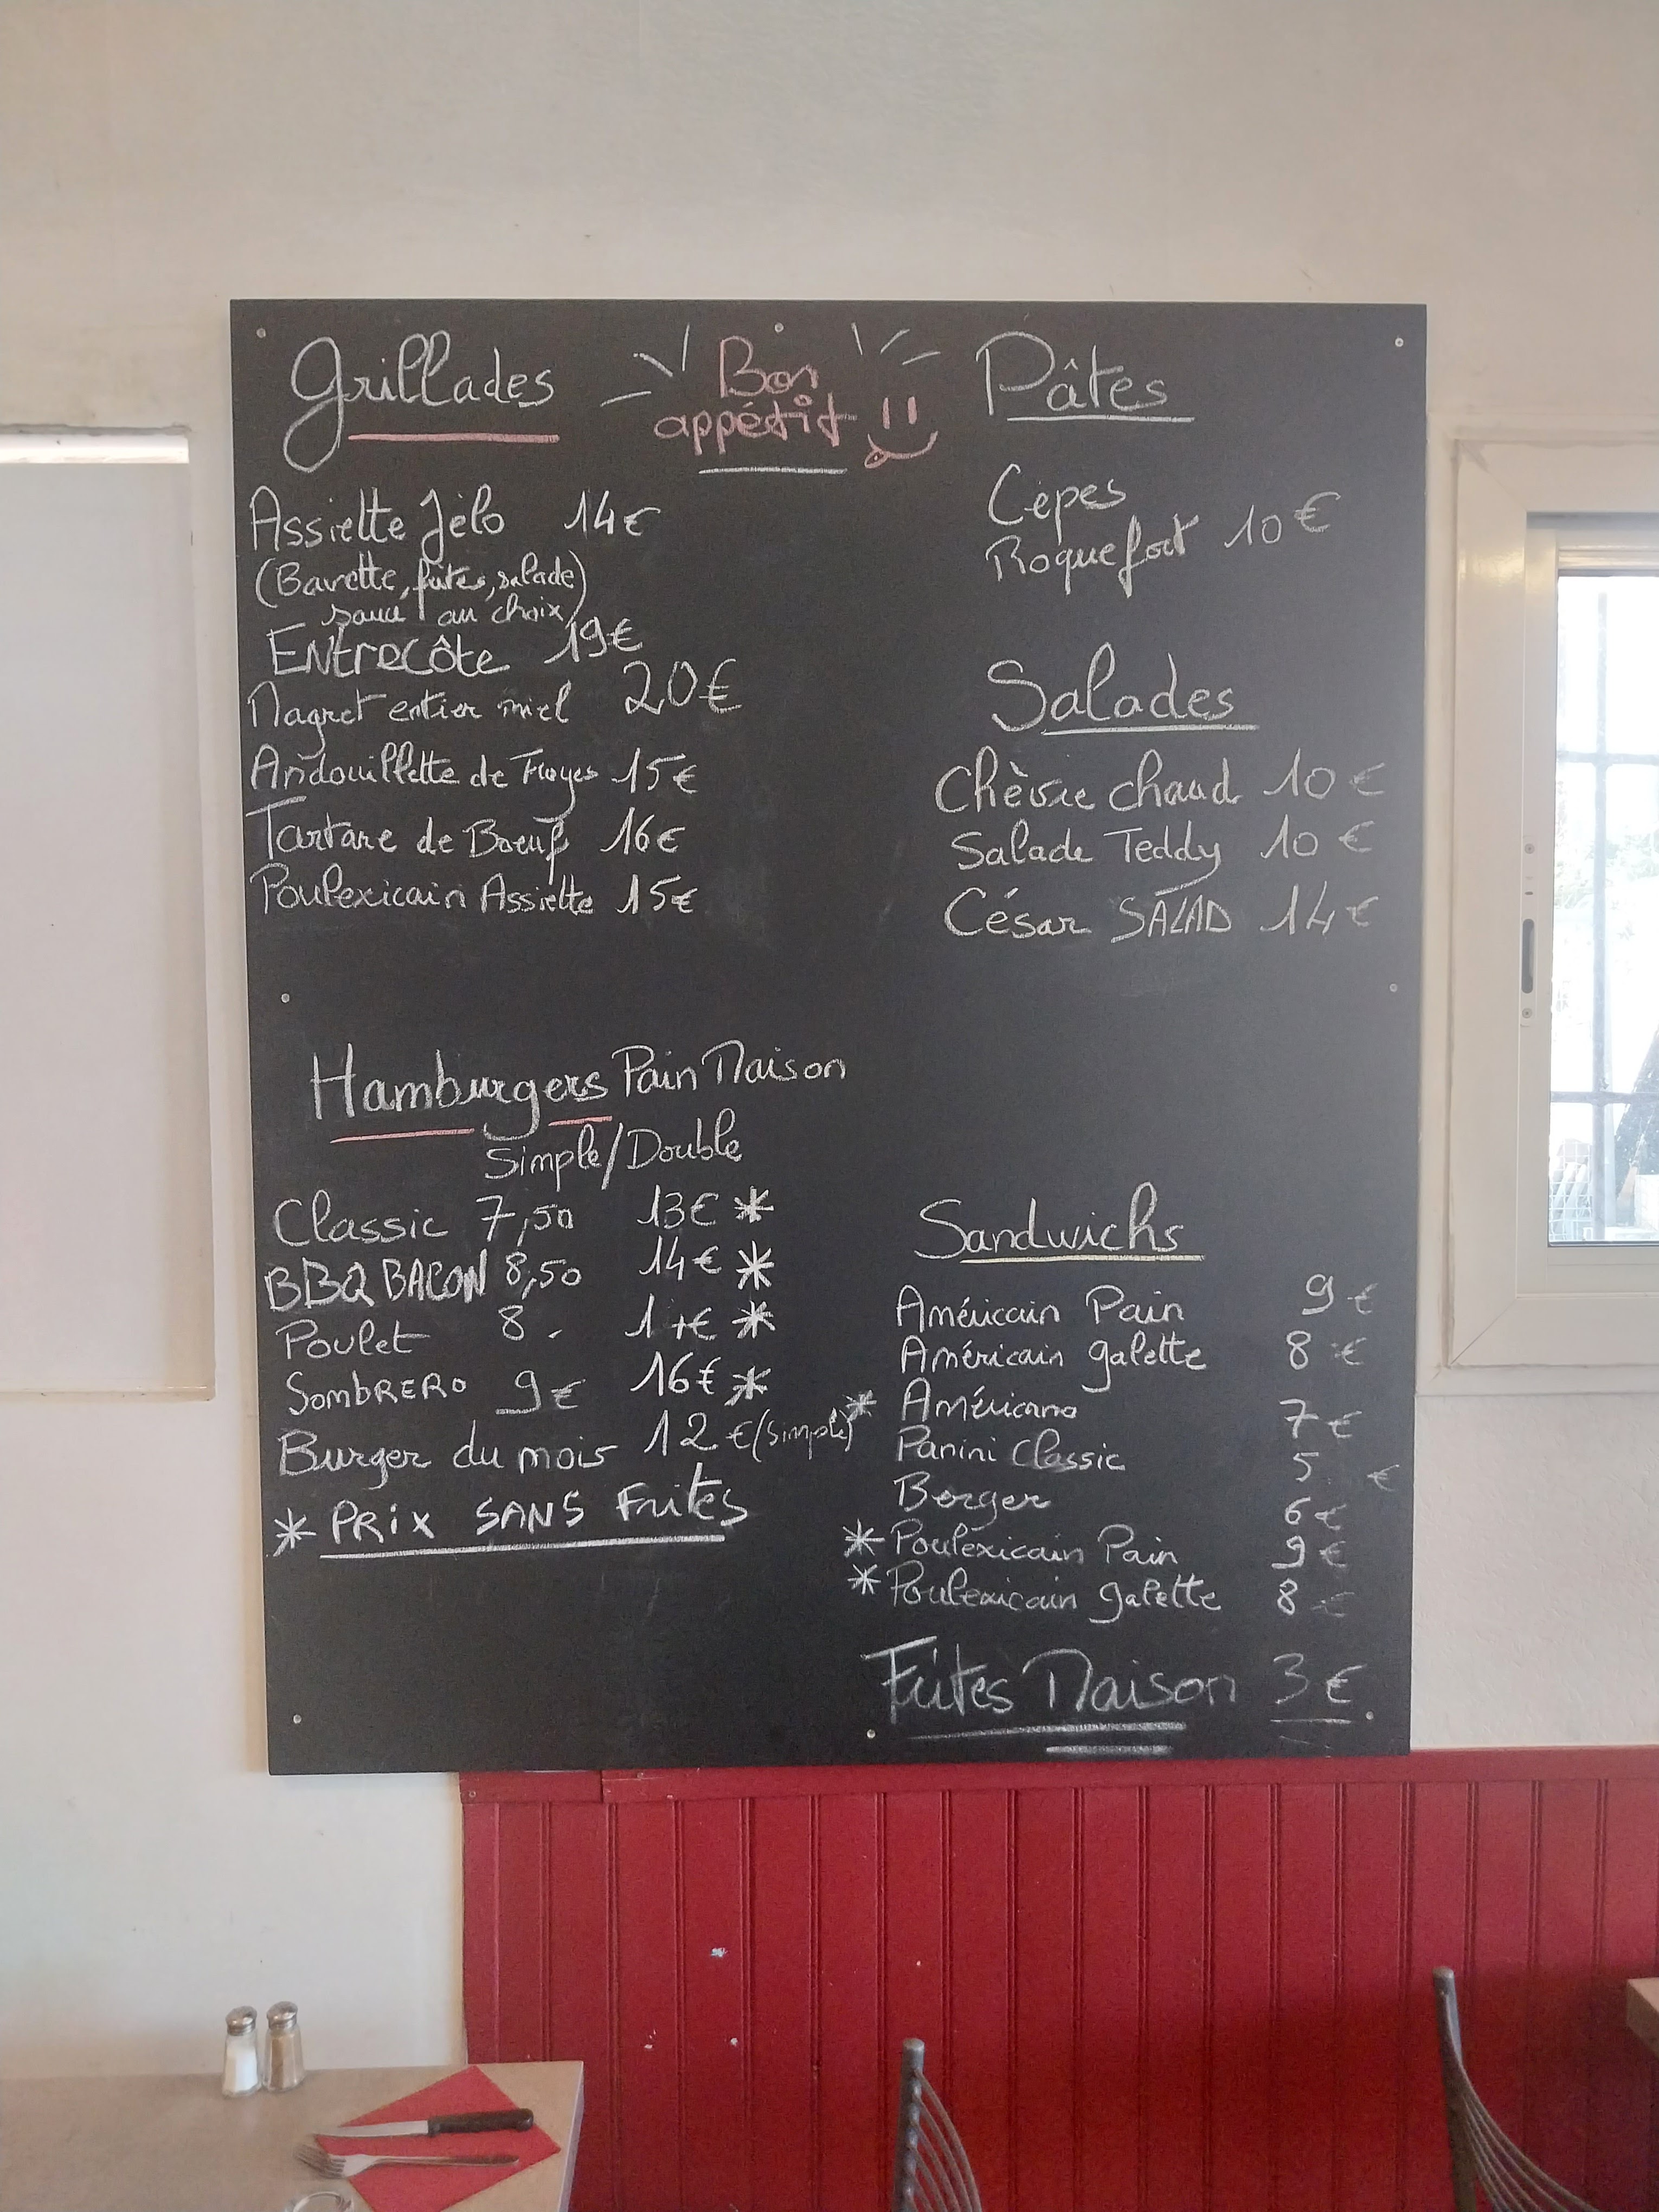 Grillades
Bon
appétit
Assiette Jélo 14€
(Bavette, frites, salade)
sauce au choix)
ENtrecôte 19€
Magret entier miel 20€
Andouillette de Troyes 15€
Tartare de Boeuf 16€
Poulexicain Assiette 15€
Hamburgers Pain Maison
Simple/Double
Classic 7,50 13€ *
BBQ BACON 8,50 14€ *
Poulet 8 *
SombRERO 9€ 16€ *
Burger du mois 12€ (simple)
* PRiX SANS FRitES
Pâtes
Cèpes
Roquefort 10€
Salades
Chèvre chaud 10€
Salade Teddy 10€
César SALAD 14€
Sandwichs
Américain Pain 9€
Américain galette 8€
* Américano 7€
Panini Classic 5€
Berger 6€
* Poulexicain Pain 9€
* Poulexicain galette 8€
Frites Maison 3€